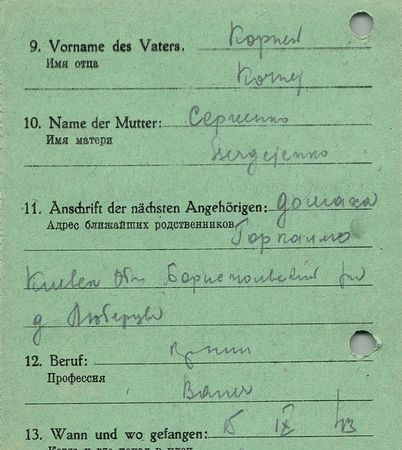 9. Vorname des Vaters. Корней
Имя отца
Korney
10. Name der Mutter: Сергиенко
Имя матери
Sergejenko
11. Anschrift der nächsten Angehörigen: Домаха
Адрес ближайших родственников
Киевск Обл Бориспольский
д
12. Beruf:
Профессия
Bauer
13. Wann und wo gefangen: 15 IX 43